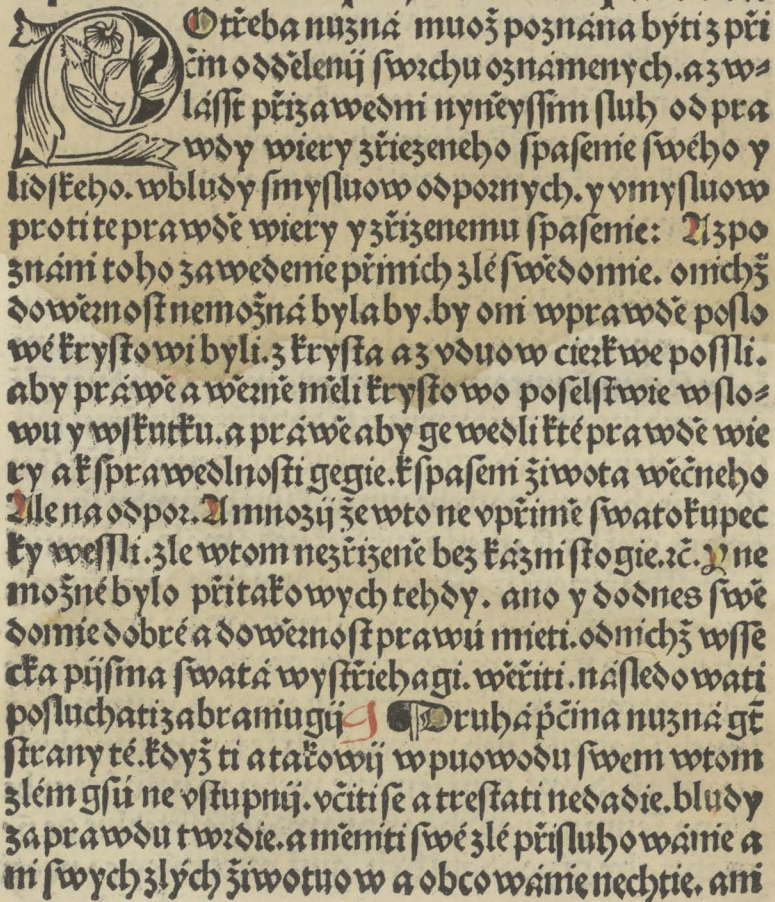 POtřeba nuzná muož poznána býti z při
čin oddělenij swrchu oznámenych. a z w⸗
lásst při zawedni nyněyssim sluh od pra
wdy wiery zřiezeneho spasenie swého y
lidskeho. w bludy smysluow odpornych. y vmysluow
proti te prawdě wiery y zřizenemu spasenie: A z po
znáni toho zawedenie při nich zlé swědomie. o nichž
dowěrnost nemožná byla by. by oni w prawdě poslo
wé krystowi byli. z krysta a z vduow cierkwe possli.
aby práwě a wěrně měli krystowo poselstwie w slo⸗
wu y w skutku. a práwě aby ge wedli k té prawdě wie
ry a k sprawedlnosti gegie. k spaseni žiwota wěčneho
Ale na odpor. A mnozij že w to ne vpřimě swatokupec
ky wessli. zle w tom nezřizeně bez kázni stogie. ꝛč. Y ne
možné bylo při takowych tehdy. ano y dodnes swě
domie dobré a dowěrnost prawú mieti. od nichž wsse
cka pijsma swatá wystřiehagi. wěřiti. následowati
posluchati zabraniugij ¶ Druhá pčina nuzná gt̄
strany té. když ti a takowij w puowodu swem w tom
zlém gsú ne vstupnij. včiti se a trestati nedadie. bludy
za prawdu twrdie. a měniti swé zlé přisluhowánie a
ni swych zlých žiwotuow a obcowánie nechtie. ani